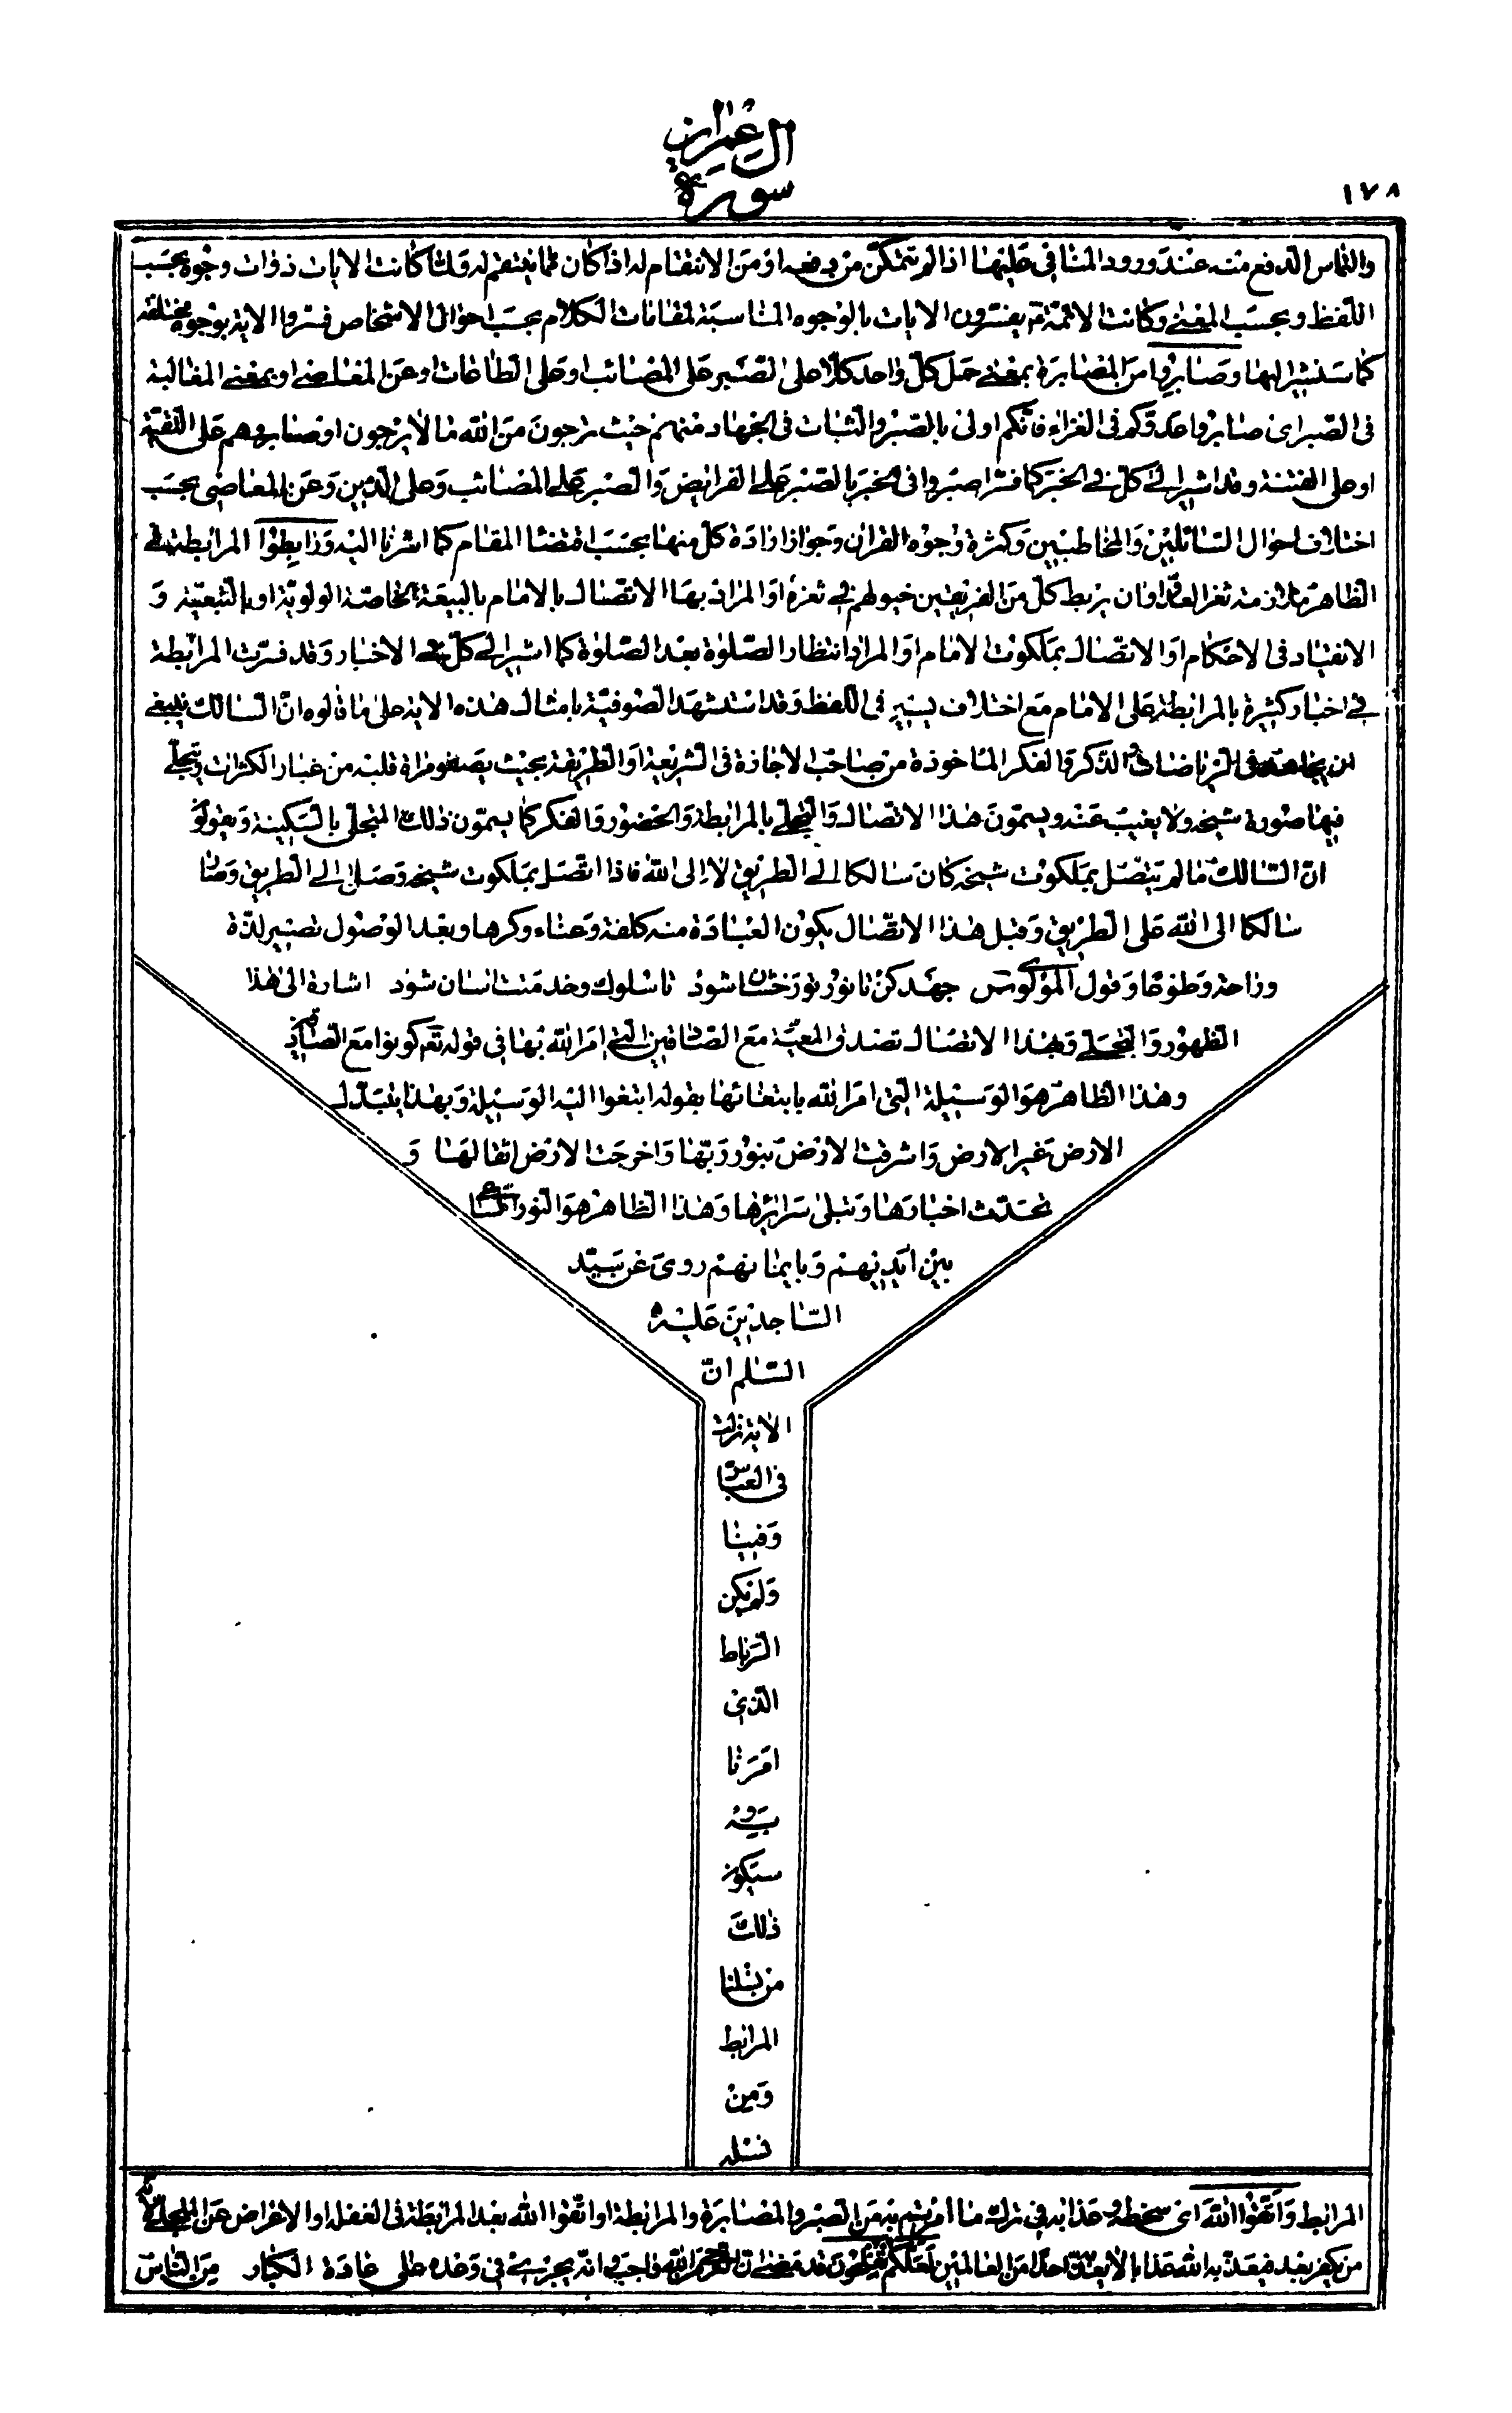 ١٧٨
سورة
ال عمران
والتماس الدفع منه عند ورود المنافى عليها اذا لم تتمكن من دفعه او من الانتقام له اذا كان مما ينتقم له ولما كانت الايات ذوات وجوه بحسب
اللفظ وبحسب المعنى وكانت الائمة يفسرون الايات بالوجوه المناسبة لمقامات الكلام بحسب احوال الاشخاص فسروا الاية بوجوه مختلفة
كما سنشير اليها وصابروا من المصابرة بمعنى حمل كل واحد كلا على الصبر على المصائب او على الطاعات او عن المعاصى او بمعنى المغالبة
فى الصبر اى صابروا عدوكم فى الغزاء فانكم اولى بالصبر والثبات فى الجهاد منهم حيث ترجون من الله ما لا يرجون او صابروهم على التقية
او على الفتنة وقد اشير الى كل فى الخبر كما فسر اصبروا فى الخبر بالصبر على الفرائض والصبر على المصائب وعلى الدين وعن المعاصى بحسب
اختلاف احوال السائلين والمخاطبين وكثرة وجوه القران وجواز ارادة كل منها بحسب اقتضاء المقام كما اشرنا اليه ورابطوا المرابطة فى
الظاهر ملازمة ثغر العدو او ان يربط كل من الفريقين خيولهم فى ثغره او المراد بها الاتصال بالامام بالبيعة الخاصة الولوية او بالتبعية و
الانقياد فى الاحكام او الاتصال بملكوت الامام او المراد انتظار الصلوة بعد الصلوة كما اشير الى كل فى الاخبار وقد فسرت المرابطة
فى اخبار كثيرة بالمرابطة على الامام مع اختلاف يسير فى اللفظ وقد استشهد الصوفية بامثال هذه الاية على ما قالوه ان السالك ينبغى
ان يجاهد فى الرياضات والذكر والفكر الماخوذة من صاحب الاجازة فى الشريعة او الطريقة بحيث يصفو مراة قلبه من غبار الكثرات ويتجلى
فيها صورة شيخه ولا يغيب عنه ويسمون هذا الاتصال والتجلى بالمرابطة والحضور والفكر كما يسمون ذلك المتجلى بالسكينة ويقولون
ان السالك ما لم يتصل بملكوت شيخه كان سالكا الى الطريق لا الى الله فاذا اتصل بملكوت شيخه وصل الى الطريق وصار
سالكا الى الله على الطريق وقبل هذا الاتصال يكون العبادة منه كلفة وعناء وكرها وبعد الوصول تصير لذة
وراحة وطوعا وقول المولوى جهد كن تا نور تو رخشان شود تا سلوك وخدمتت اسان شود اشارة الى هذا
الظهور والتجلى وبهذا الاتصال تصدق المعية مع الصادقين التى امر الله بها فى قوله تعم كونوا مع الصادقين
وهذا الظاهر هو الوسيلة التى امر الله بابتغائها بقوله ابتغوا اليه الوسيلة وبهذا يتبدل
الارض غير الارض واشرقت الارض بنور ربها واخرجت الارض اثقالها و
تحدث اخبارها وتبلى سرائرها وهذا الظاهر هو النور الساعى
بين ايديهم وبايمانهم روى عن سيد
الساجدين عليه
السلم ان
الاية نزلت
فى العباس
وفينا
ولم يكن
الرباط
الذى
امرنا
به و
سيكون
ذلك
من نسلنا
المرابط
ومن
نسله
المرابط واتقوا الله اى سخطه وعذابه فى ترك ما امرتم به من الصبر والمصابرة والمرابطة او اتقوا الله بعد المرابطة فى الغفلة او الاعراض عن المتجلى لان
من يكفر بعد فيعذبه الله عذابا لا يعذبه احدا من العالمين لعلكم تفلحون قد مضى ان الترجى من الله واجب وانه يجرى فى وعده على عادة الكبار من الناس